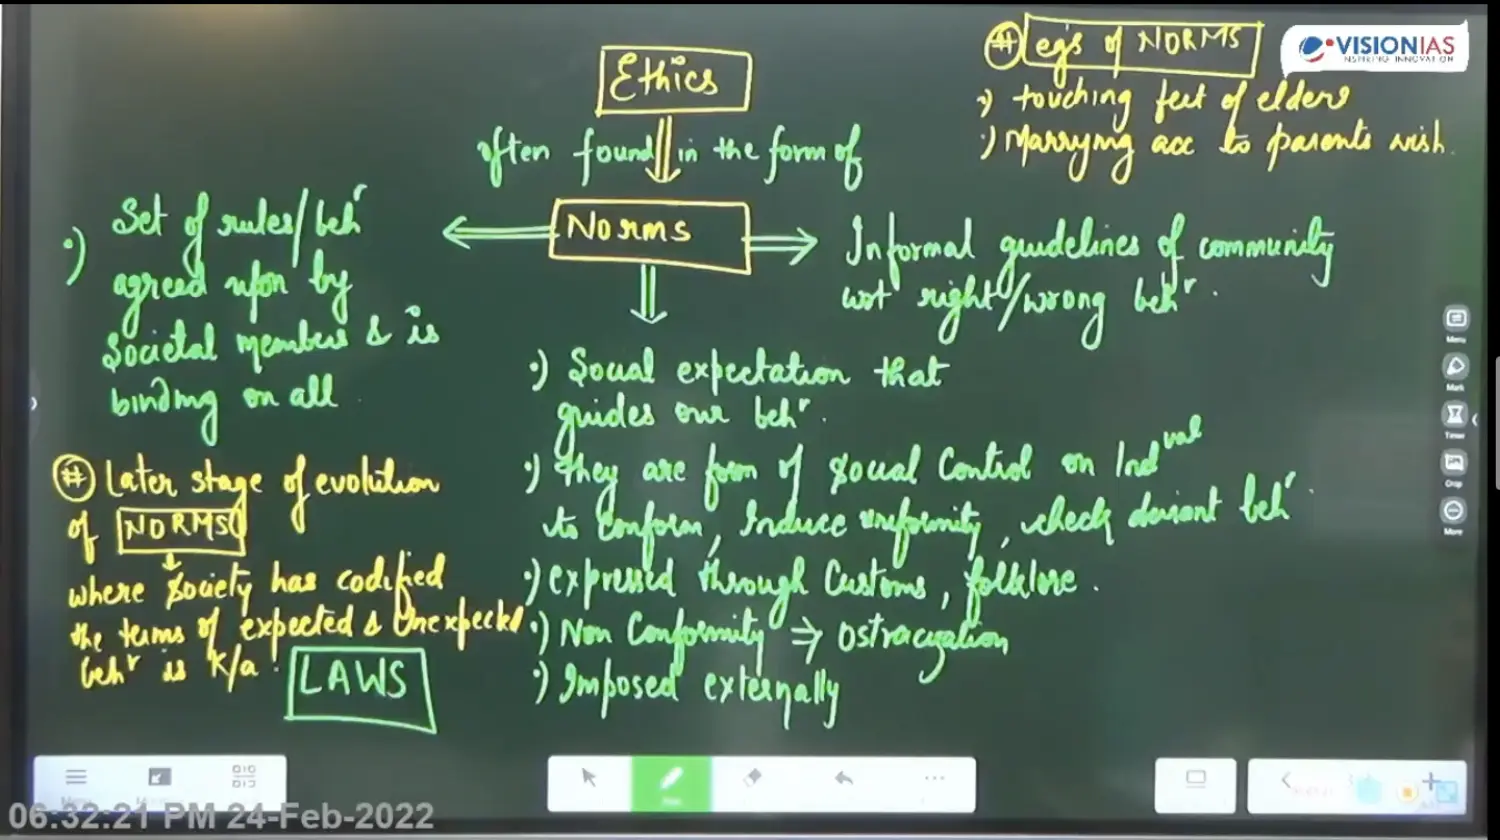 Ethics
often found in the form of
Norms
# eg's of NORMS
·) touching feet of elders
·) Marrying acc to parents wish.
VISIONIAS
INSPIRING INNOVATION
·) Set of rules/behʳ
agreed upon by
Societal members & is
binding on all
Informal guidelines of community
wrt right/wrong behʳ.
·) Social expectation that
guides our behʳ.
·) They are form of Social Control on Indᵛᵃˡ
to conform, Induce uniformity, check deviant behʳ.
·) expressed through Customs, folklore.
·) Non Conformity ⇒ Ostracization
·) Imposed externally
# Later stage of evolution
of NORMS
where society has codified
the terms of expected & Unexpected
behʳ is k/a :
LAWS
Menu
Mark
Timer
Crop
More
06:32:21 PM 24-Feb-2022